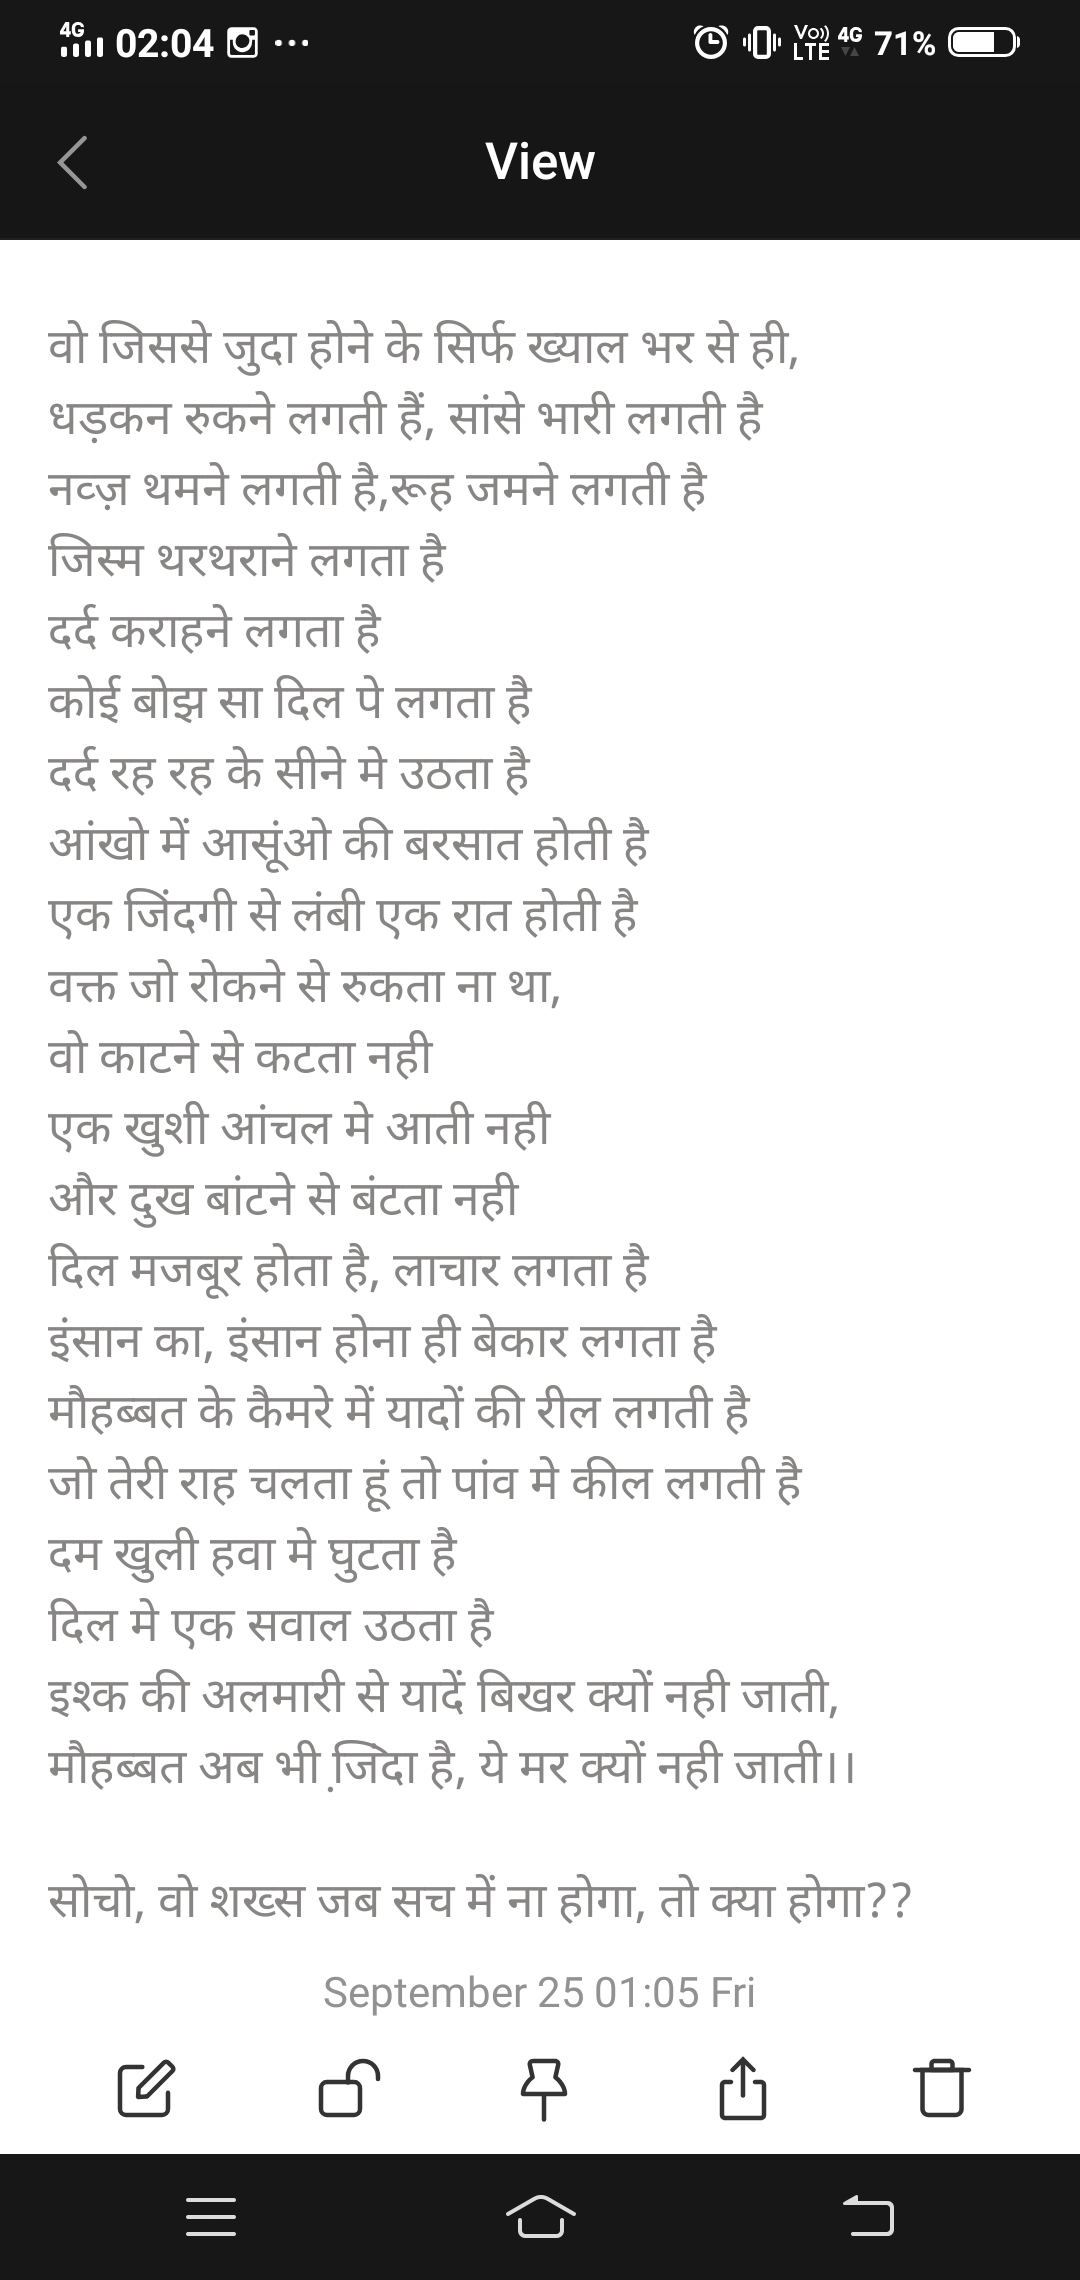 4G 02:04 Vo)) LTE 4G 71%
View
वो जिससे जुदा होने के सिर्फ ख्याल भर से ही,
धड़कन रुकने लगती हैं, सांसे भारी लगती है
नव्ज़ थमने लगती है,रूह जमने लगती है
जिस्म थरथराने लगता है
दर्द कराहने लगता है
कोई बोझ सा दिल पे लगता है
दर्द रह रह के सीने मे उठता है
आंखो में आसूंओ की बरसात होती है
एक जिंदगी से लंबी एक रात होती है
वक्त जो रोकने से रुकता ना था,
वो काटने से कटता नही
एक खुशी आंचल मे आती नही
और दुख बांटने से बंटता नही
दिल मजबूर होता है, लाचार लगता है
इंसान का, इंसान होना ही बेकार लगता है
मौहब्बत के कैमरे में यादों की रील लगती है
जो तेरी राह चलता हूं तो पांव मे कील लगती है
दम खुली हवा मे घुटता है
दिल मे एक सवाल उठता है
इश्क की अलमारी से यादें बिखर क्यों नही जाती,
मौहब्बत अब भी ज़िंदा है, ये मर क्यों नही जाती।।
सोचो, वो शख्स जब सच में ना होगा, तो क्या होगा??
September 25 01:05 Fri